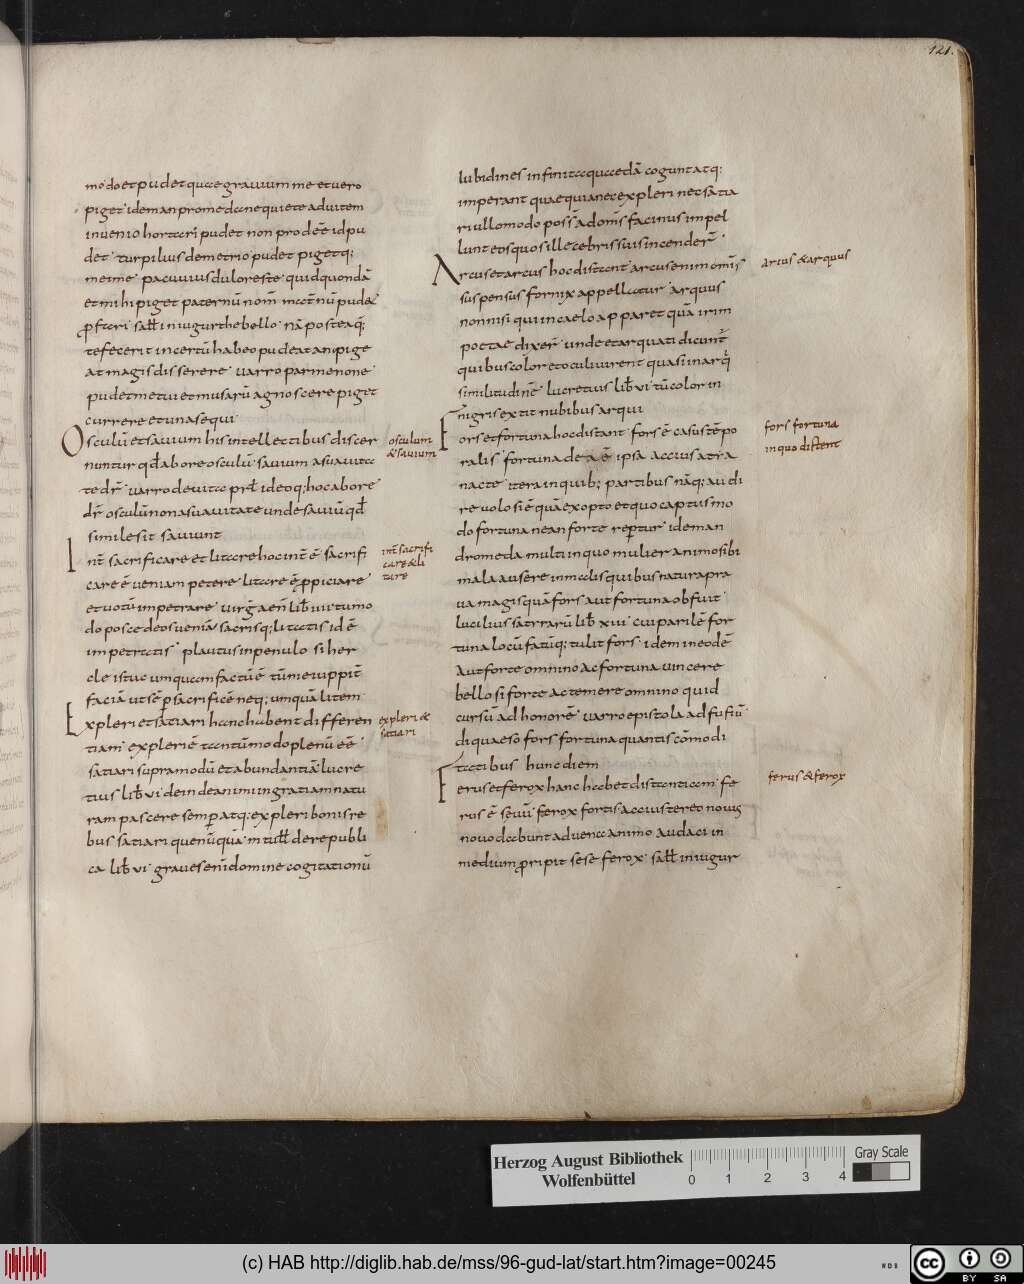 121.
modo et pudet quae gravium me et uero
piget idem an promedcc nequiete ad uitem
inuenio hortari pudet non prodeē id pu
det turpilius demetrio pudet pigetq;
meime pacuuius duloreste quid quondā
et mihi piget paternū nom̄ mat̄nū pudet
ꝓfari sall̄ in iugurthe bello nā posteaq̄;
te fecerit incertū habeo pudeat an pige
at magis disserere uarro parmenone
pudet metui et musarū agnoscere piget
currere et una sequi
Osculū et sauium his intellectibus discer
nuntur qđ ab ore osculū sauium a suauita
te dr̄ uarro de uita pr̄ł ideoq; hoc ab ore
dr̄ osculū non a suauitate unde sauiū qđ
simile sit sauiunt
Int̄ sacrificare et litare hoc int̄ ē sacrifi
care ē ueniam petere litare ē ꝓpiciare
et uotū impetrare uirḡ aen̄ lib̄ uii tu mo
do posce deos ueniā sacrisq; litatis id ē
impetratis plautus in penulo si her
cle istuc umquam factū ē tū me iuppit̄
faciā ut sēp sacrificē neq; umquā litem
Expleri et satiari hanc habent differen
tiam expleri ē tantūmodo plenū eē
satiari supra modū et abundantiā lucre
tius lib̄ vi deinde animi ingratiam natu
ram pascere semp atq; explere bonis re
bus satiari quenūquā m tull̄ de re publi
ca lib̄ vi graues enī domine cogitationū
osculum
& sauium
int̄ sacrifi
care & li
tare
expleri &
satiari
lubidines infinita quaedā cogunt atq:
imperant quae quia nec expleri nec satia
ri ullo modo poss̄ ad om̄s facinus impel
lunt eos quos illecebris suis incender̄
Arcus et arcus hoc distant arcus enim om̄is
suspensus fornix appellatur arquus
non nisi qui in caelo apparet quā irim
poetae dixer̄ unde et arquati dicunt̄
quibus color et oculi uirent quasi in arq̄
similitudinē lucretius lib̄ vi tū color in
nigris extit nubibus arqui
Fors et fortuna hoc distant fors ē casus tēpo
ralis fortuna dea ē ipsa accius astra
nacte itera in quib; partibus nāq; audi
re uolo si ē quā exopto et quo captus mo
do fortuna ne an forte repertur idem an
dromeda multi in quo mulier animo sibi
mala ausere in malis quibus natura pra
ua magis quā fors aut fortuna obfuit
lucilius satrarū lib̄ xiii cui parilē for
tuna locū fatūq; tulit fors idem in eodē
Aut forte omnino ac fortuna uincere
bello si forte ac temere omnino quid
cursū ad honorē uarro epistola ad fufiū
di quaeso fors fortuna quantis cōmodi
tatibus hunc diem
Ferus et ferox hanc habet distantiam fe
rus ē seuū ferox fortis accius tereo nouus
nouo dabunt aduena animo audaci in
medium ꝓripit sese ferox sall̄ in iugur
arcus & arquus
fors fortuna
in quo distent
ferus & ferox
Herzog August Bibliothek
Wolfenbüttel
0 1 2 3 4
Gray Scale
(c) HAB http://diglib.hab.de/mss/96-gud-lat/start.htm?image=00245
WDB
cc
BY SA